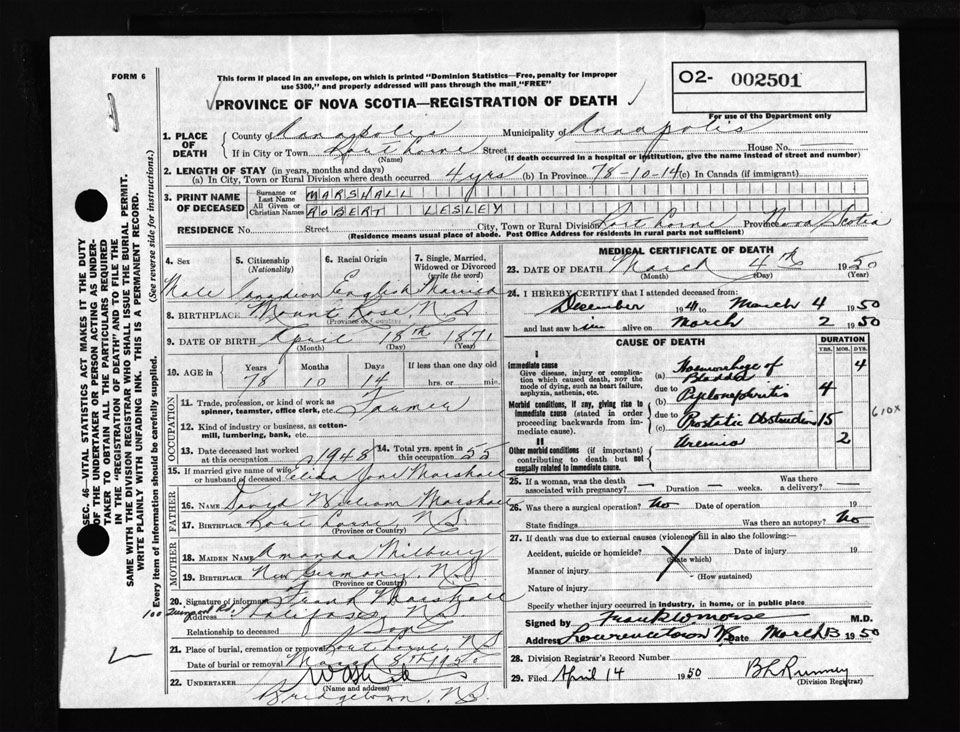 FORM 6
This form if placed in an envelope, on which is printed "Dominion Statistics—Free, penalty for improper
use $300," and properly addressed will pass through the mail, "FREE"
O2- 002501
PROVINCE OF NOVA SCOTIA—REGISTRATION OF DEATH
For use of the Department only
1. PLACE OF DEATH
County of Annapolis Municipality of Annapolis
If in City or Town Port Lorne Street House No.
(Name) (If death occurred in a hospital or institution, give the name instead of street and number)
2. LENGTH OF STAY (in years, months and days)
(a) In City, Town or Rural Division where death occurred 4 yrs (b) In Province 78-10-14 (c) In Canada (if immigrant)
3. PRINT NAME OF DECEASED
Surname or Last Name MARSHALL
All Given or Christian Names ROBERT LESLEY
RESIDENCE No. Street City, Town or Rural Division Port Lorne Province Nova Scotia
(Residence means usual place of abode. Post Office Address for residents in rural parts not sufficient)
4. Sex 5. Citizenship (Nationality) 6. Racial Origin 7. Single, Married, Widowed or Divorced (write the word)
Male Canadian English Married
8. BIRTHPLACE Mount Rose, N.S
(Province or Country)
9. DATE OF BIRTH April 18th 1871
(Month) (Day) (Year)
10. AGE in Years Months Days If less than one day old
78 10 14 hrs. or min.
OCCUPATION
11. Trade, profession or kind of work as spinner, teamster, office clerk, etc. Farmer
12. Kind of industry or business, as cotton-mill, lumbering, bank, etc.
13. Date deceased last worked at this occupation 1948 14. Total yrs. spent in this occupation 55
15. If married give name of wife or husband of deceased Jone Marshall
FATHER
16. NAME David William Marshall
17. BIRTHPLACE Port Lorne, N.S.
(Province or Country)
MOTHER
18. MAIDEN NAME Amanda Milbury
19. BIRTHPLACE New Germany, N.S
(Province or Country)
20. Signature of informant Frank Marshall
Address Halifax, N.S
Relationship to deceased Son
21. Place of burial, cremation or removal Port Lorne, N.S
Date of burial or removal March 1950
22. UNDERTAKER
(Name and address)
Bridgetown, N.S.
MEDICAL CERTIFICATE OF DEATH
23. DATE OF DEATH March 4th 1950
(Month) (Day) (Year)
24. I HEREBY CERTIFY that I attended deceased from:
December 19 to March 4 1950
and last saw him alive on March 2 1950
CAUSE OF DEATH
DURATION
YRS. MOS. DYS.
I
Immediate cause
Give disease, injury or complication which caused death, not the mode of dying, such as heart failure, asphyxia, asthenia, etc.
(a) Haemorrhage of Bladder 4
due to
Morbid conditions, if any, giving rise to immediate cause (stated in order proceeding backwards from immediate cause).
(b) Pyelonephritis 4
due to
(c) Prostatic Obstruction 15
610X
II
Other morbid conditions (if important) contributing to death but not causally related to immediate cause.
Uremia 2
25. If a woman, was the death associated with pregnancy? — Duration — weeks. Was there a delivery? —
26. Was there a surgical operation? No Date of operation 19
State findings Was there an autopsy? No
27. If death was due to external causes (violence) fill in also the following:—
Accident, suicide or homicide? Date of injury 19
(State which)
Manner of injury
(How sustained)
Nature of injury
Specify whether injury occurred in industry, in home, or in public place
Signed by Frank W Morse M.D.
Address Lawrencetown NS Date March 13 1950
28. Division Registrar's Record Number
29. Filed April 14 1950 B L Rumney
(Division Registrar)
SEC. 46—VITAL STATISTICS ACT MAKES IT THE DUTY
OF THE UNDERTAKER OR PERSON ACTING AS UNDER-
TAKER TO OBTAIN ALL THE PARTICULARS REQUIRED
IN THE "REGISTRATION OF DEATH" AND TO FILE THE
SAME WITH THE DIVISION REGISTRAR WHO SHALL ISSUE THE BURIAL PERMIT.
WRITE PLAINLY WITH UNFADING INK. THIS IS A PERMANENT RECORD.
Every item of information should be carefully supplied. (See reverse side for instructions.)